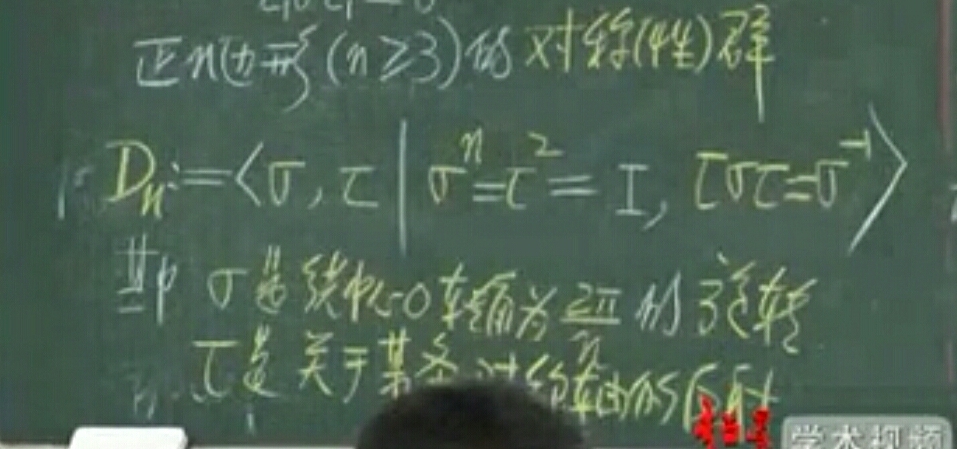 正n边形(n≥3)的对称(性)群
Dn:=<σ, τ | σ^n=τ^2=I, τστ=σ^-1>
其中 σ是绕中心O转角为 2π/n 的旋转
τ是关于某条对称轴的反射
学术视频